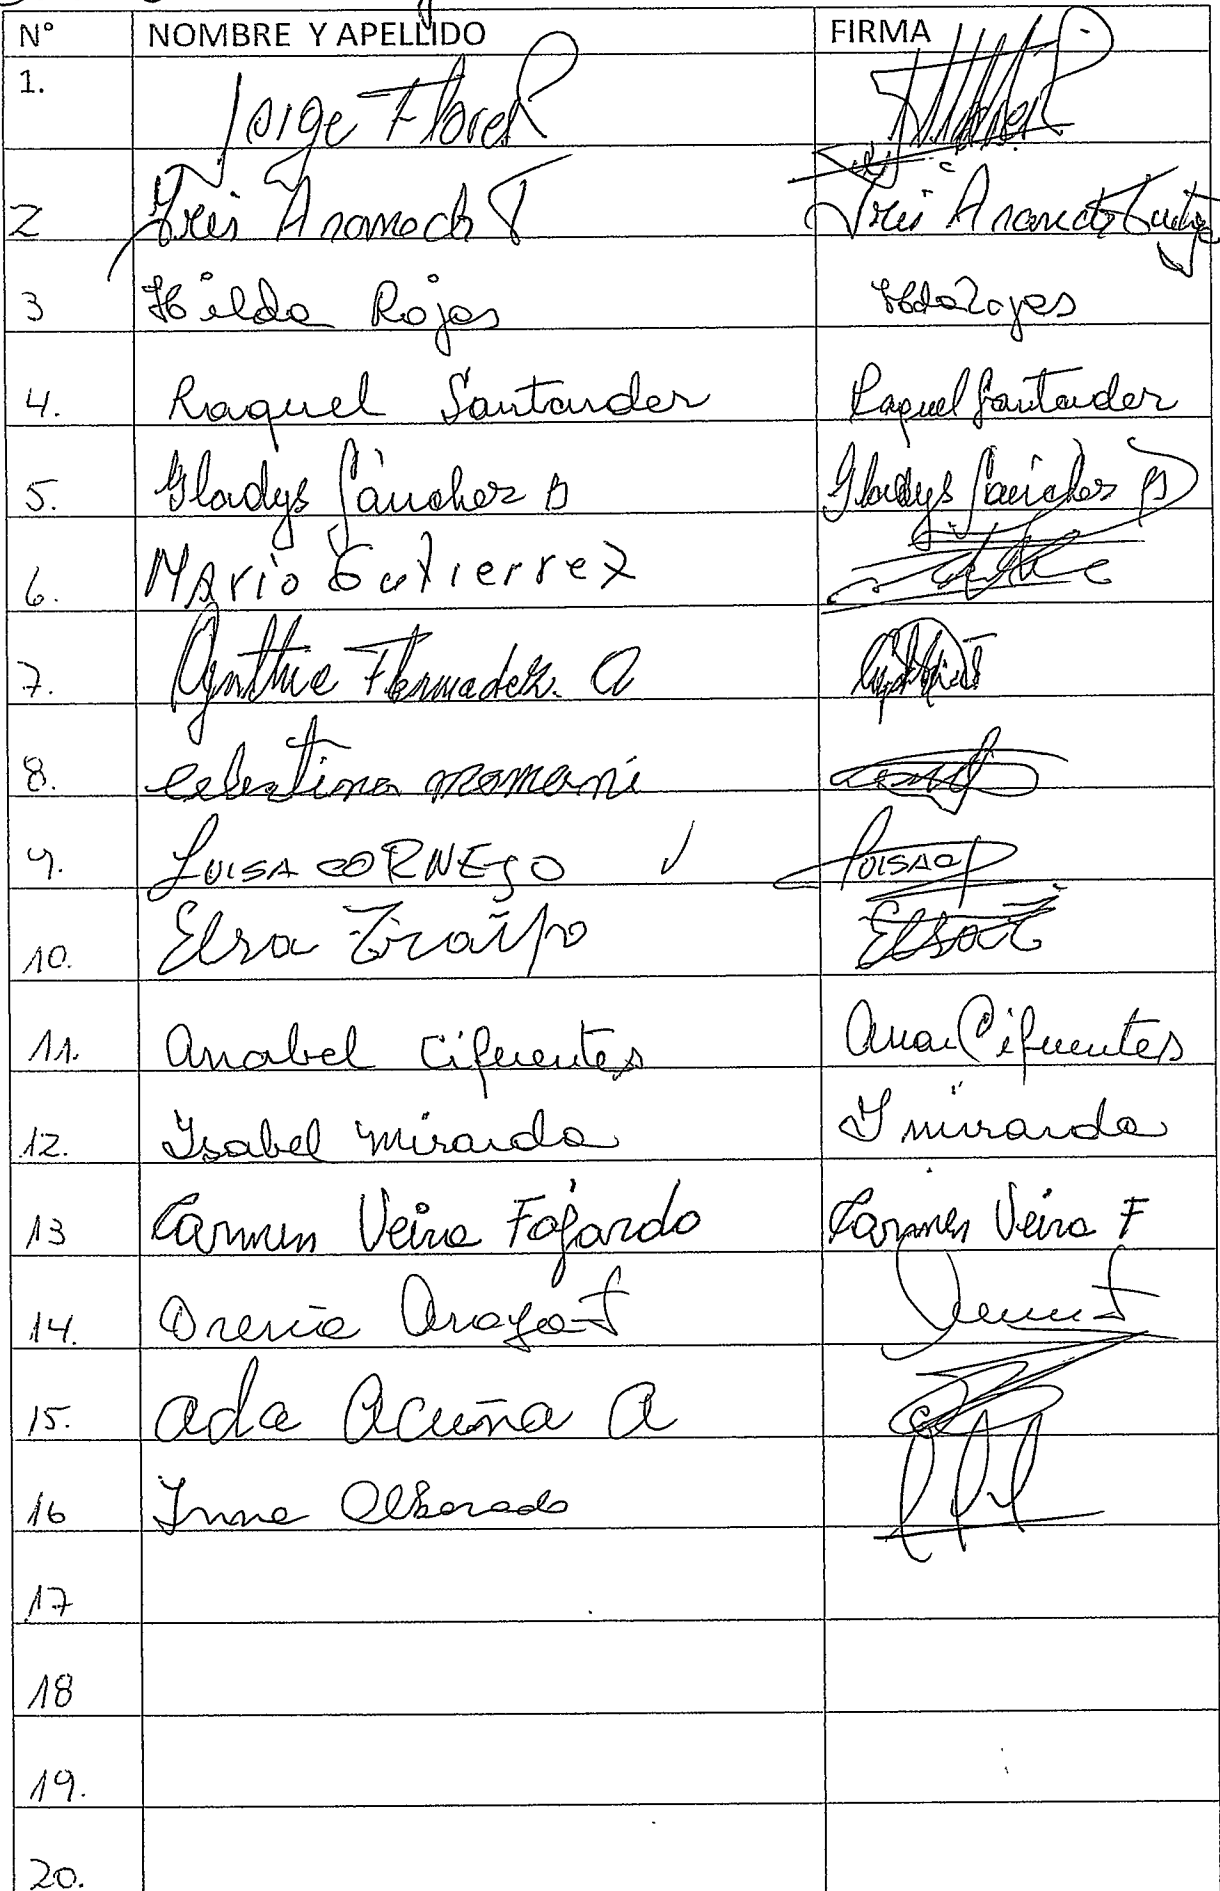 N° NOMBRE Y APELLIDO FIRMA
1. Jorge Flores
2 Iris Aramech T
3 Hilda Rojas
4. Raquel Santander Raquel Santander
5. Gladys Sánchez B Gladys Sánchez B
6. MArio Gutierrez
7. Cynthia Hernadez. A
8. celestina mamani
9. LUISA CORNEJO ✓ LUISA
10. Elsa Elsa
11. Anabel Cifuentes Ana Cifuentes
12. Isabel Miranda I miranda
13 Carmen Veira Fajardo Carmen Veira F
14. Araya
15. Ada Acuña A
16
17
18
19.
20.